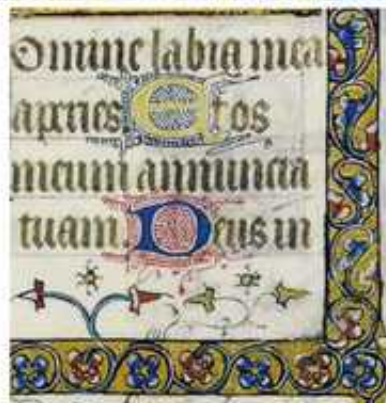 Omine labia mea
aperies Et os
meum annuncia
tuam. Deus in